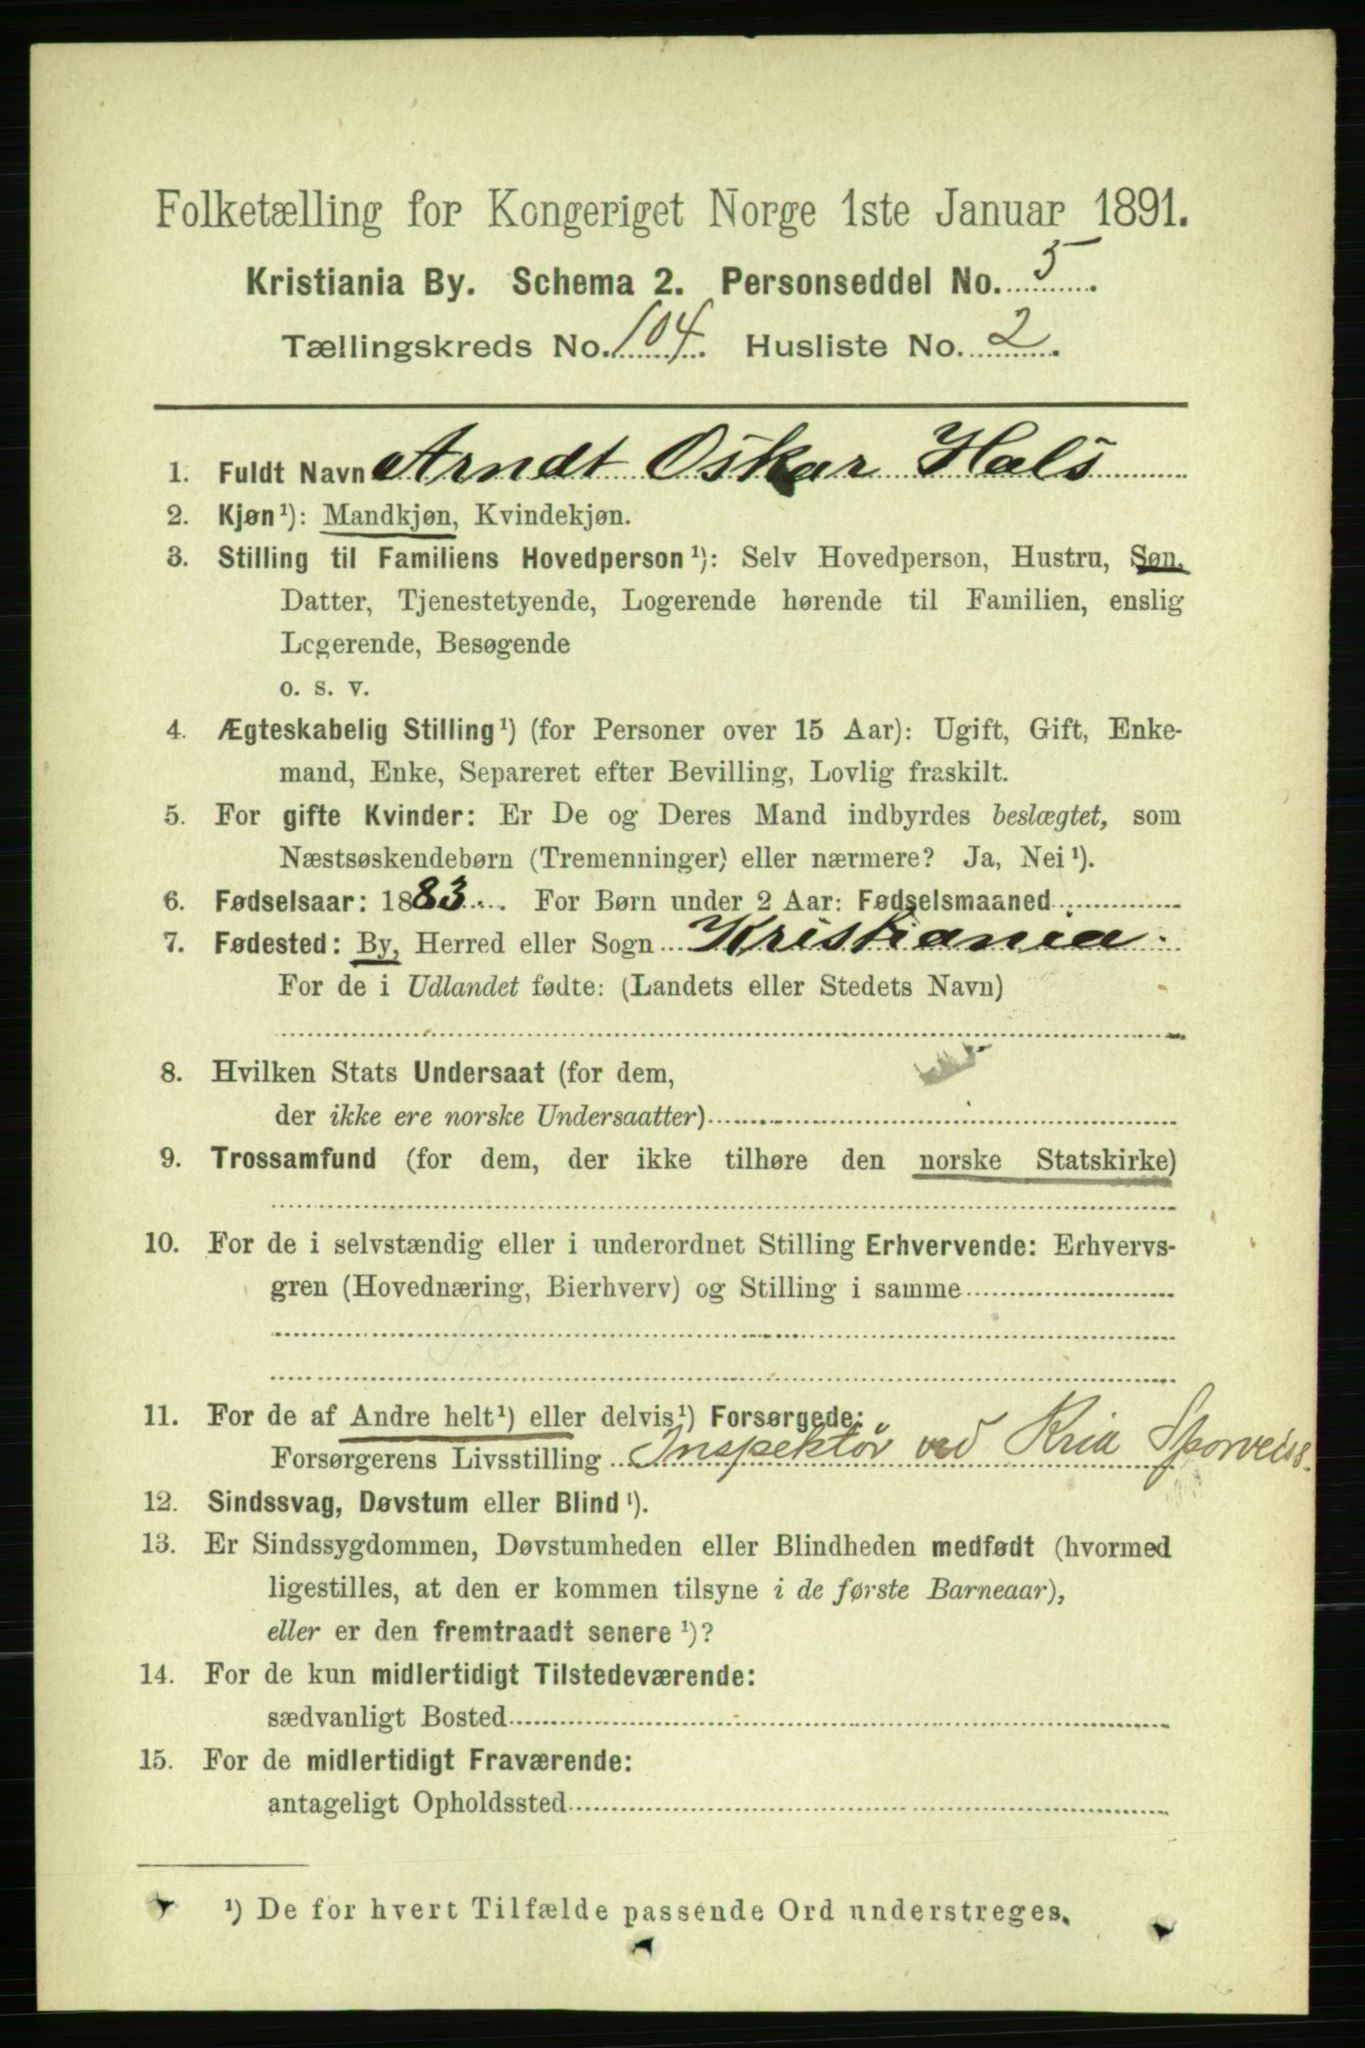 Folketælling for Kongeriget Norge 1ste Januar 1891.
Kristiania By. Schema 2. Personseddel No. 5.
Tællingskreds No. 104. Husliste No. 2.
1. Fuldt Navn Arndt Oskar Hals
2. Kjøn¹): Mandkjøn, Kvindekjøn.
3. Stilling til Familiens Hovedperson¹): Selv Hovedperson, Hustru, Søn,
Datter, Tjenestetyende, Logerende hørende til Familien, enslig
Logerende, Besøgende
o. s. v.
4. Ægteskabelig Stilling¹) (for Personer over 15 Aar): Ugift, Gift, Enke-
mand, Enke, Separeret efter Bevilling, Lovlig fraskilt.
5. For gifte Kvinder: Er De og Deres Mand indbyrdes beslægtet, som
Næstsøskendebørn (Tremenninger) eller nærmere? Ja, Nei¹).
6. Fødselsaar: 1883. For Børn under 2 Aar: Fødselsmaaned
7. Fødested: By, Herred eller Sogn Kristiania.
For de i Udlandet fødte: (Landets eller Stedets Navn)
8. Hvilken Stats Undersaat (for dem,
der ikke ere norske Undersaatter)
9. Trossamfund (for dem, der ikke tilhøre den norske Statskirke)
10. For de i selvstændig eller i underordnet Stilling Erhvervende: Erhvervs-
gren (Hovednæring, Bierhverv) og Stilling i samme
11. For de af Andre helt¹) eller delvis¹) Forsørgede:
Forsørgerens Livsstilling Inspektör ved Kria Sporveiss.
12. Sindssvag, Døvstum eller Blind¹).
13. Er Sindssygdommen, Døvstumheden eller Blindheden medfødt (hvormed
ligestilles, at den er kommen tilsyne i de første Barneaar),
eller er den fremtraadt senere¹)?
14. For de kun midlertidigt Tilstedeværende:
sædvanligt Bosted
15. For de midlertidigt Fraværende:
antageligt Opholdssted
¹) De for hvert Tilfælde passende Ord understreges.